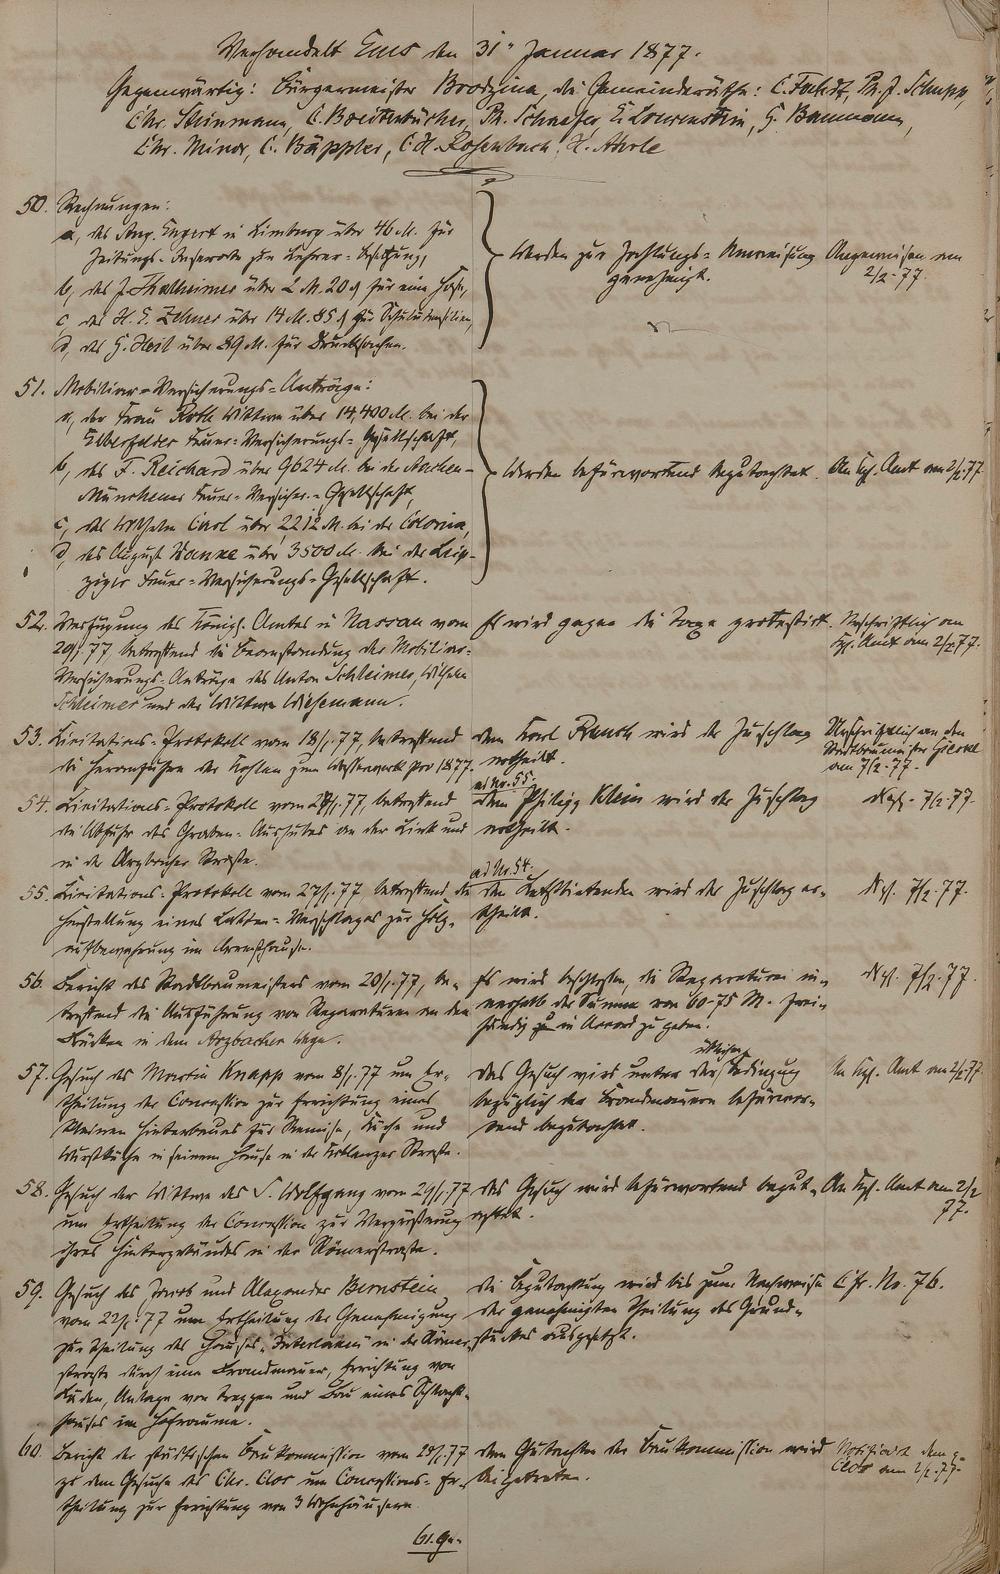 Verhandelt Ems den 31. Januar 1877.
Gegenwärtig: Bürgermeister Brodzina, die Gemeinderäthe: C. Faldt, Ph. J. Schupp,
Chr. Steinmann, C. Breitenbücher, Ph. Schaefer, E. Löwenstein, G. Baumann,
Chr. Minor, C. Bäppler, C. H. Rosenbach, H.
50. Rechnungen:
a, des Aug. in Limburg über 46 M. für
Zeitungs-Inserate zur Lehrer-Besetzung,
b, des J. Thalheimer über 2 M. 20 ₰ für eine
c, des H. E. Zehner über 14 M. 85 ₰ für Schulutensilien,
d, des G. Heil über 89 M. für Drucksachen.
Werden zur Zahlungs-Anweisung
genehmigt.
Angewiesen am
2/2. 77.
51. Mobiliar-Versicherungs-Anträge:
a, der Frau Roth Wittwe über 14,400 M. bei der
Elberfelder Feuer-Versicherungs-Gesellschaft,
b, des F. Reichard über 9624 M. bei der Aachen-
Münchener Feuer-Versicher.-Gesellschaft,
c, des Wilhelm Carl über 2212 M. bei der Colonia,
d, des August Wanke über 3500 M. bei der Leip-
ziger Feuer-Versicherungs-Gesellschaft.
Werden befürwortend begutachtet.
An Kgl. Amt am 2/2. 77.
52. Verfügung des Königl. Amtes in Nassau vom
29/1. 77, betreffend die Beanstandung der Mobiliar-
Versicherungs-Anträge des Anton Schleimer, Wilhelm
Schleimer und der Wittwe Wiesemann.
Es wird gegen die Taxe protestirt.
Urschriftlich an
Kgl. Amt am 2/2. 77.
53. Licitations-Protokoll vom 18/1. 77, betreffend
die Heranfuhr der Kohlen zum Wasserwerk pro 1877.
Dem Karl Rauch wird der Zuschlag
ertheilt.
Urschriftlich an den
Stadtbaumeister
am 7/2. 77.
54. Licitations-Protokoll vom 27/1. 77, betreffend
die Abfuhr des Graben-Aushubes an der Link und
in der Arzbacher Straße.
ad Nr. 55.
Dem Philipp Klein wird der Zuschlag
ertheilt.
desgl. 7/2. 77.
55. Licitations-Protokoll vom 27/1. 77 betreffend die
Herstellung eines Latten-Verschlages zur Holz-
aufbewahrung im Armenhause.
ad Nr. 54.
Den Letztbietenden wird der Zuschlag er-
theilt.
desgl. 7/2. 77.
56. Bericht des Stadtbaumeisters vom 20/1. 77, be-
treffend die Ausführung von Reparaturen an den
Brücken in dem Arzbacher Wege.
Es wird beschlossen, die Reparaturen in-
nerhalb der Summe von 60-75 M. frei-
händig zu in Accord zu geben.
desgl. 7/2. 77.
57. Gesuch des Martin Knapp vom 8/1. 77 um Er-
theilung der Concession zur Errichtung eines
kleinen Hinterbaues für Remise, Küche und
Wurstküche in seinem Hause in der Coblenzer Straße.
üblichen
Das Gesuch wird unter der Bedingung
bezüglich der Brandmauern befürwor-
tend begutachtet.
An Kgl. Amt am 2/2. 77.
58. Gesuch der Wittwe des S. Wolfgang vom 29/1. 77
um Ertheilung der Concession zur Vergrößerung
ihres Hintergebäudes in der Römerstraße.
Das Gesuch wird befürwortend begut-
achtet.
An Kgl. Amt am 2/2
77.
59. Gesuch des Jacob und Alexander Bernstein
vom 22/1. 77 um Ertheilung der Genehmigung
zur Theilung des Hauses "Interlaken" in der Römer-
straße durch eine Brandmauer, Errichtung von
Läden, Anlage von Treppen und Bau eines Schlacht-
hauses im Hofraume.
Die Begutachtung wird bis zum Nachweise
der genehmigten Theilung des Grund-
stückes ausgesetzt.
Cfr. No. 76.
60. Bericht der städtischen Baukommission vom 28/1. 77
zu dem Gesuche des Chr. Clos um Concessions-Er-
theilung zur Errichtung von 3 Wohnhäusern.
Dem Gutachten der Baukommission wird
beigetreten.
Notificirt dem
Clos am 2/2. 77.
61. Ge-